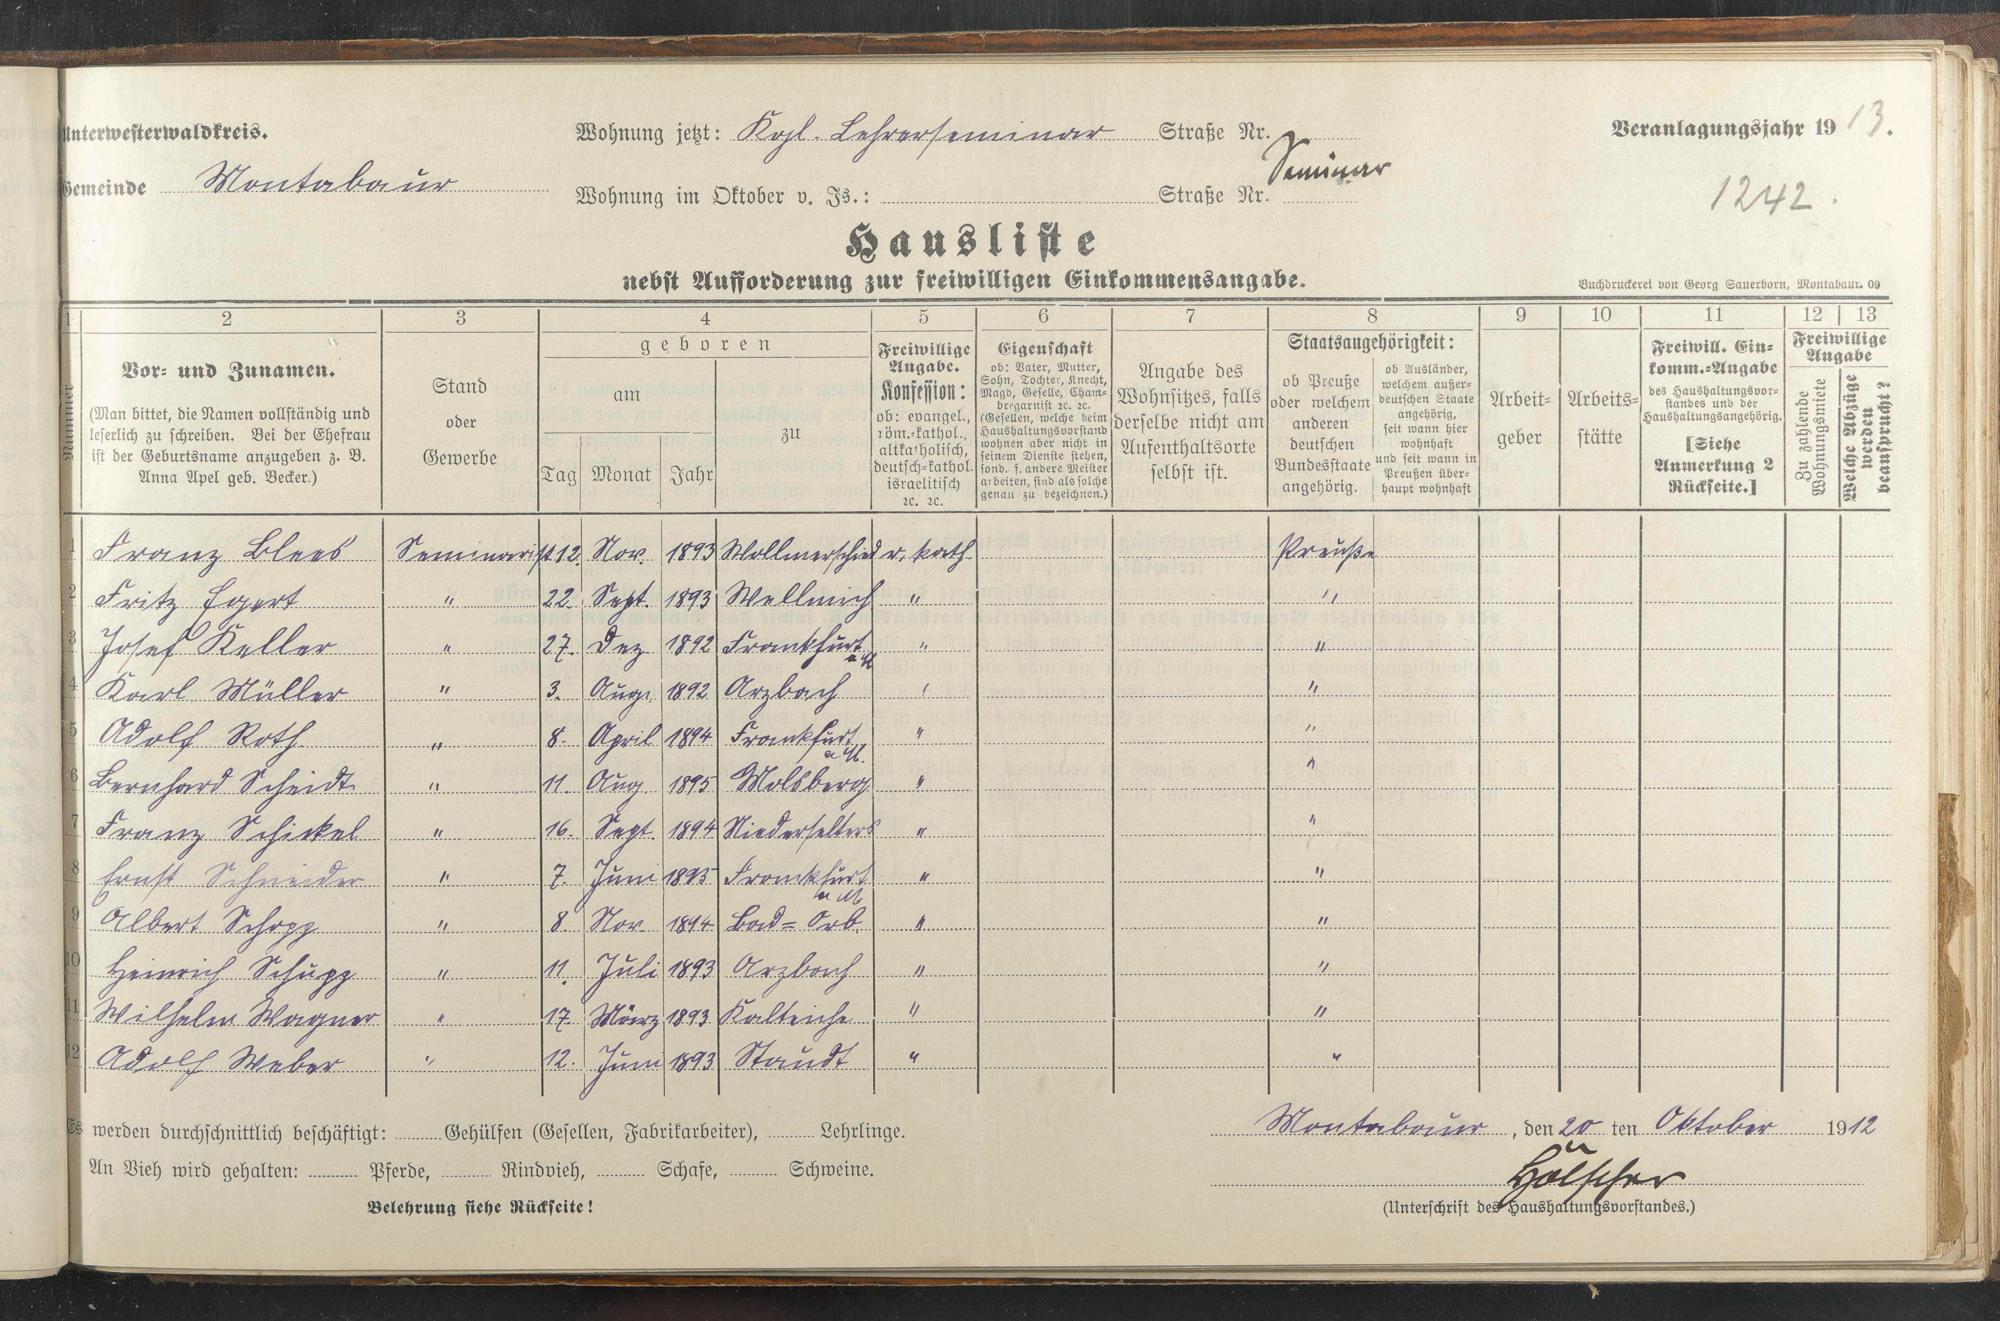 Unterwesterwaldkreis.
Wohnung jetzt: Kgl. Lehrerseminar Straße Nr.
Veranlagungsjahr 1913.
Gemeinde Montabaur
Wohnung im Oktober v. Js.: Straße Nr. Seminar
1242.
Hausliste
nebst Aufforderung zur freiwilligen Einkommensangabe.
Buchdruckerei von Georg Sauerborn, Montabaur. 09
1 2 3 4 5 6 7 8 9 10 11 12 13
Nummer
Vor- und Zunamen.
(Man bittet, die Namen vollständig und
leserlich zu schreiben. Bei der Ehefrau
ist der Geburtsname anzugeben z. B.
Anna Apel geb. Becker.)
Stand
oder
Gewerbe
geboren
am
zu
Tag Monat Jahr
Freiwillige
Angabe.
Konfession:
ob: evangel.,
röm.-kathol.,
altkatholisch,
deutsch-kathol.
israelitisch
2c. 2c.
Eigenschaft
ob: Vater, Mutter,
Sohn, Tochter, Knecht,
Magd, Geselle, Cham-
bregarnist 2c. 2c.
(Gesellen, welche beim
Haushaltungsvorstand
wohnen aber nicht in
seinem Dienste stehen,
sond. f. andere Meister
arbeiten, sind als solche
genau zu bezeichnen.)
Angabe des
Wohnsitzes, falls
derselbe nicht am
Aufenthaltsorte
selbst ist.
Staatsangehörigkeit:
ob Preuße
oder welchem
anderen
deutschen
Bundesstaate
angehörig.
ob Ausländer,
welchem außer-
deutschen Staate
angehörig,
seit wann hier
wohnhaft
und seit wann in
Preußen über-
haupt wohnhaft
Arbeit-
geber
Arbeits-
stätte
Freiwill. Ein-
komm.-Angabe
des Haushaltungsvor-
standes und der
Haushaltungsangehörig.
[Siehe
Anmerkung 2
Rückseite.]
Freiwillige
Angabe
Zu zahlende
Wohnungsmiete
Welche Abzüge
werden
beansprucht?
1 Franz Blees Seminarist 12. Nov. 1893 Wollmerschied r. kath. Preuße
2 Fritz Egert " 22. Sept. 1893 Wellmich " "
3 Josef Keller " 27. Dez 1892 Frankfurt a M " "
4 Karl Müller " 3. Aug. 1892 Arzbach " "
5 Adolf Roth " 8. April 1894 Frankfurt a M. " "
6 Bernhard Scheidt " 11. Aug. 1895 Molsberg " "
7 Franz Schickel " 16. Sept. 1894 Niederselters " "
8 Ernst Schneider " 7. Juni 1895 Frankfurt a M " "
9 Albert Schopp " 8. Nov. 1894 Bad=Orb. " "
10 Heinrich Schupp " 11. Juli 1893 Arzbach " "
11 Wilhelm Wagner " 17. März 1893 Kalteiche " "
12 Adolf Weber " 12. Juni 1893 Staudt " "
Es werden durchschnittlich beschäftigt: Gehülfen (Gesellen, Fabrikarbeiter), Lehrlinge.
Montabaur, den 20 ten Oktober 1912
An Vieh wird gehalten: Pferde, Rindvieh, Schafe, Schweine.
Hölscher
Belehrung siehe Rückseite!
(Unterschrift des Haushaltungsvorstandes.)